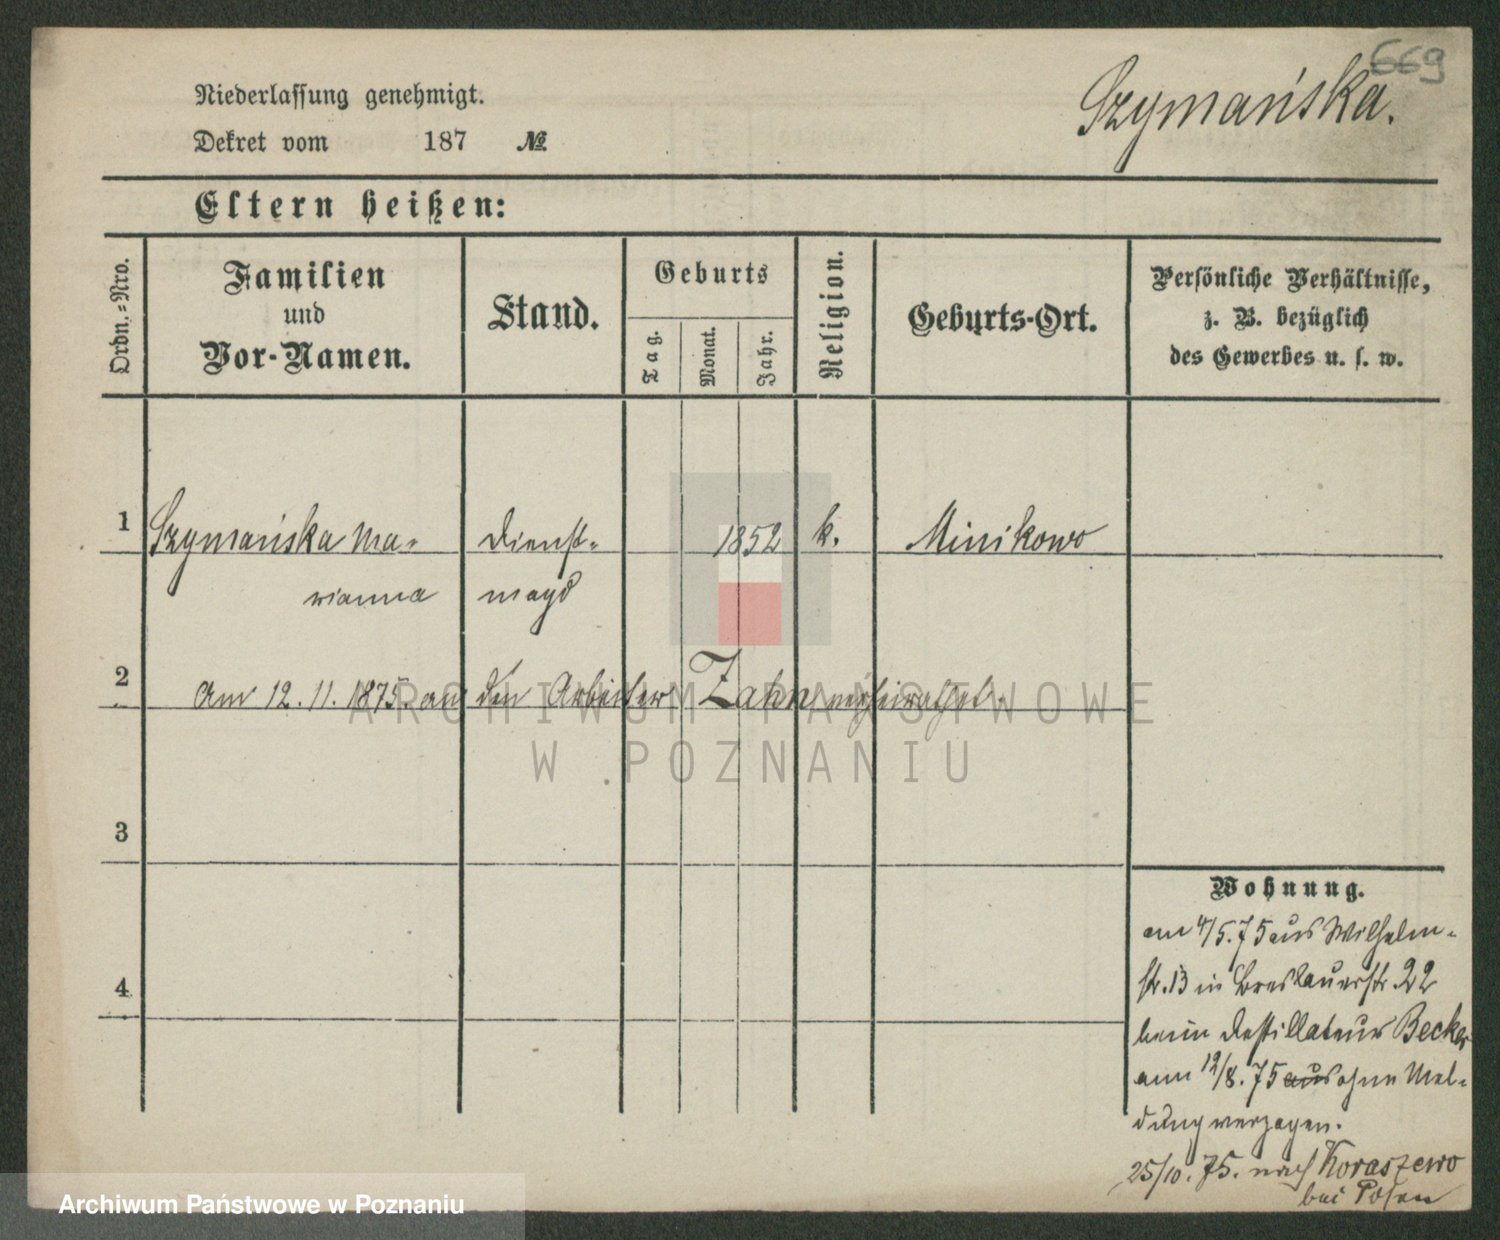 669
Szymańska.
Niederlassung genehmigt.
Dekret vom 187 №
Eltern heißen:
Ordn.-Nro.
Familien
und
Vor-Namen.
Stand.
Geburts
Tag.
Monat.
Jahr.
Religion.
Geburts-Ort.
Persönliche Verhältnisse,
z. B. bezüglich
des Gewerbes u. s. w.
1 Szymańska Ma- Dienst- 1852 k. Minikowo
rianna magd
2 Am 12. 11. 1875. an den Arbeiter Zahn verheirathet.
3
4
Wohnung.
am 4/5. 75 aus Wilhelm-
str. 13 in Breslauerstr. 22
beim Destillateur Becker
am 12/8. 75 aus ohne Mel-
dung verzogen.
25/10. 75. nach Koraszewo
bei Posen
ARCHIWUM PAŃSTWOWE
W POZNANIU
Archiwum Państwowe w Poznaniu